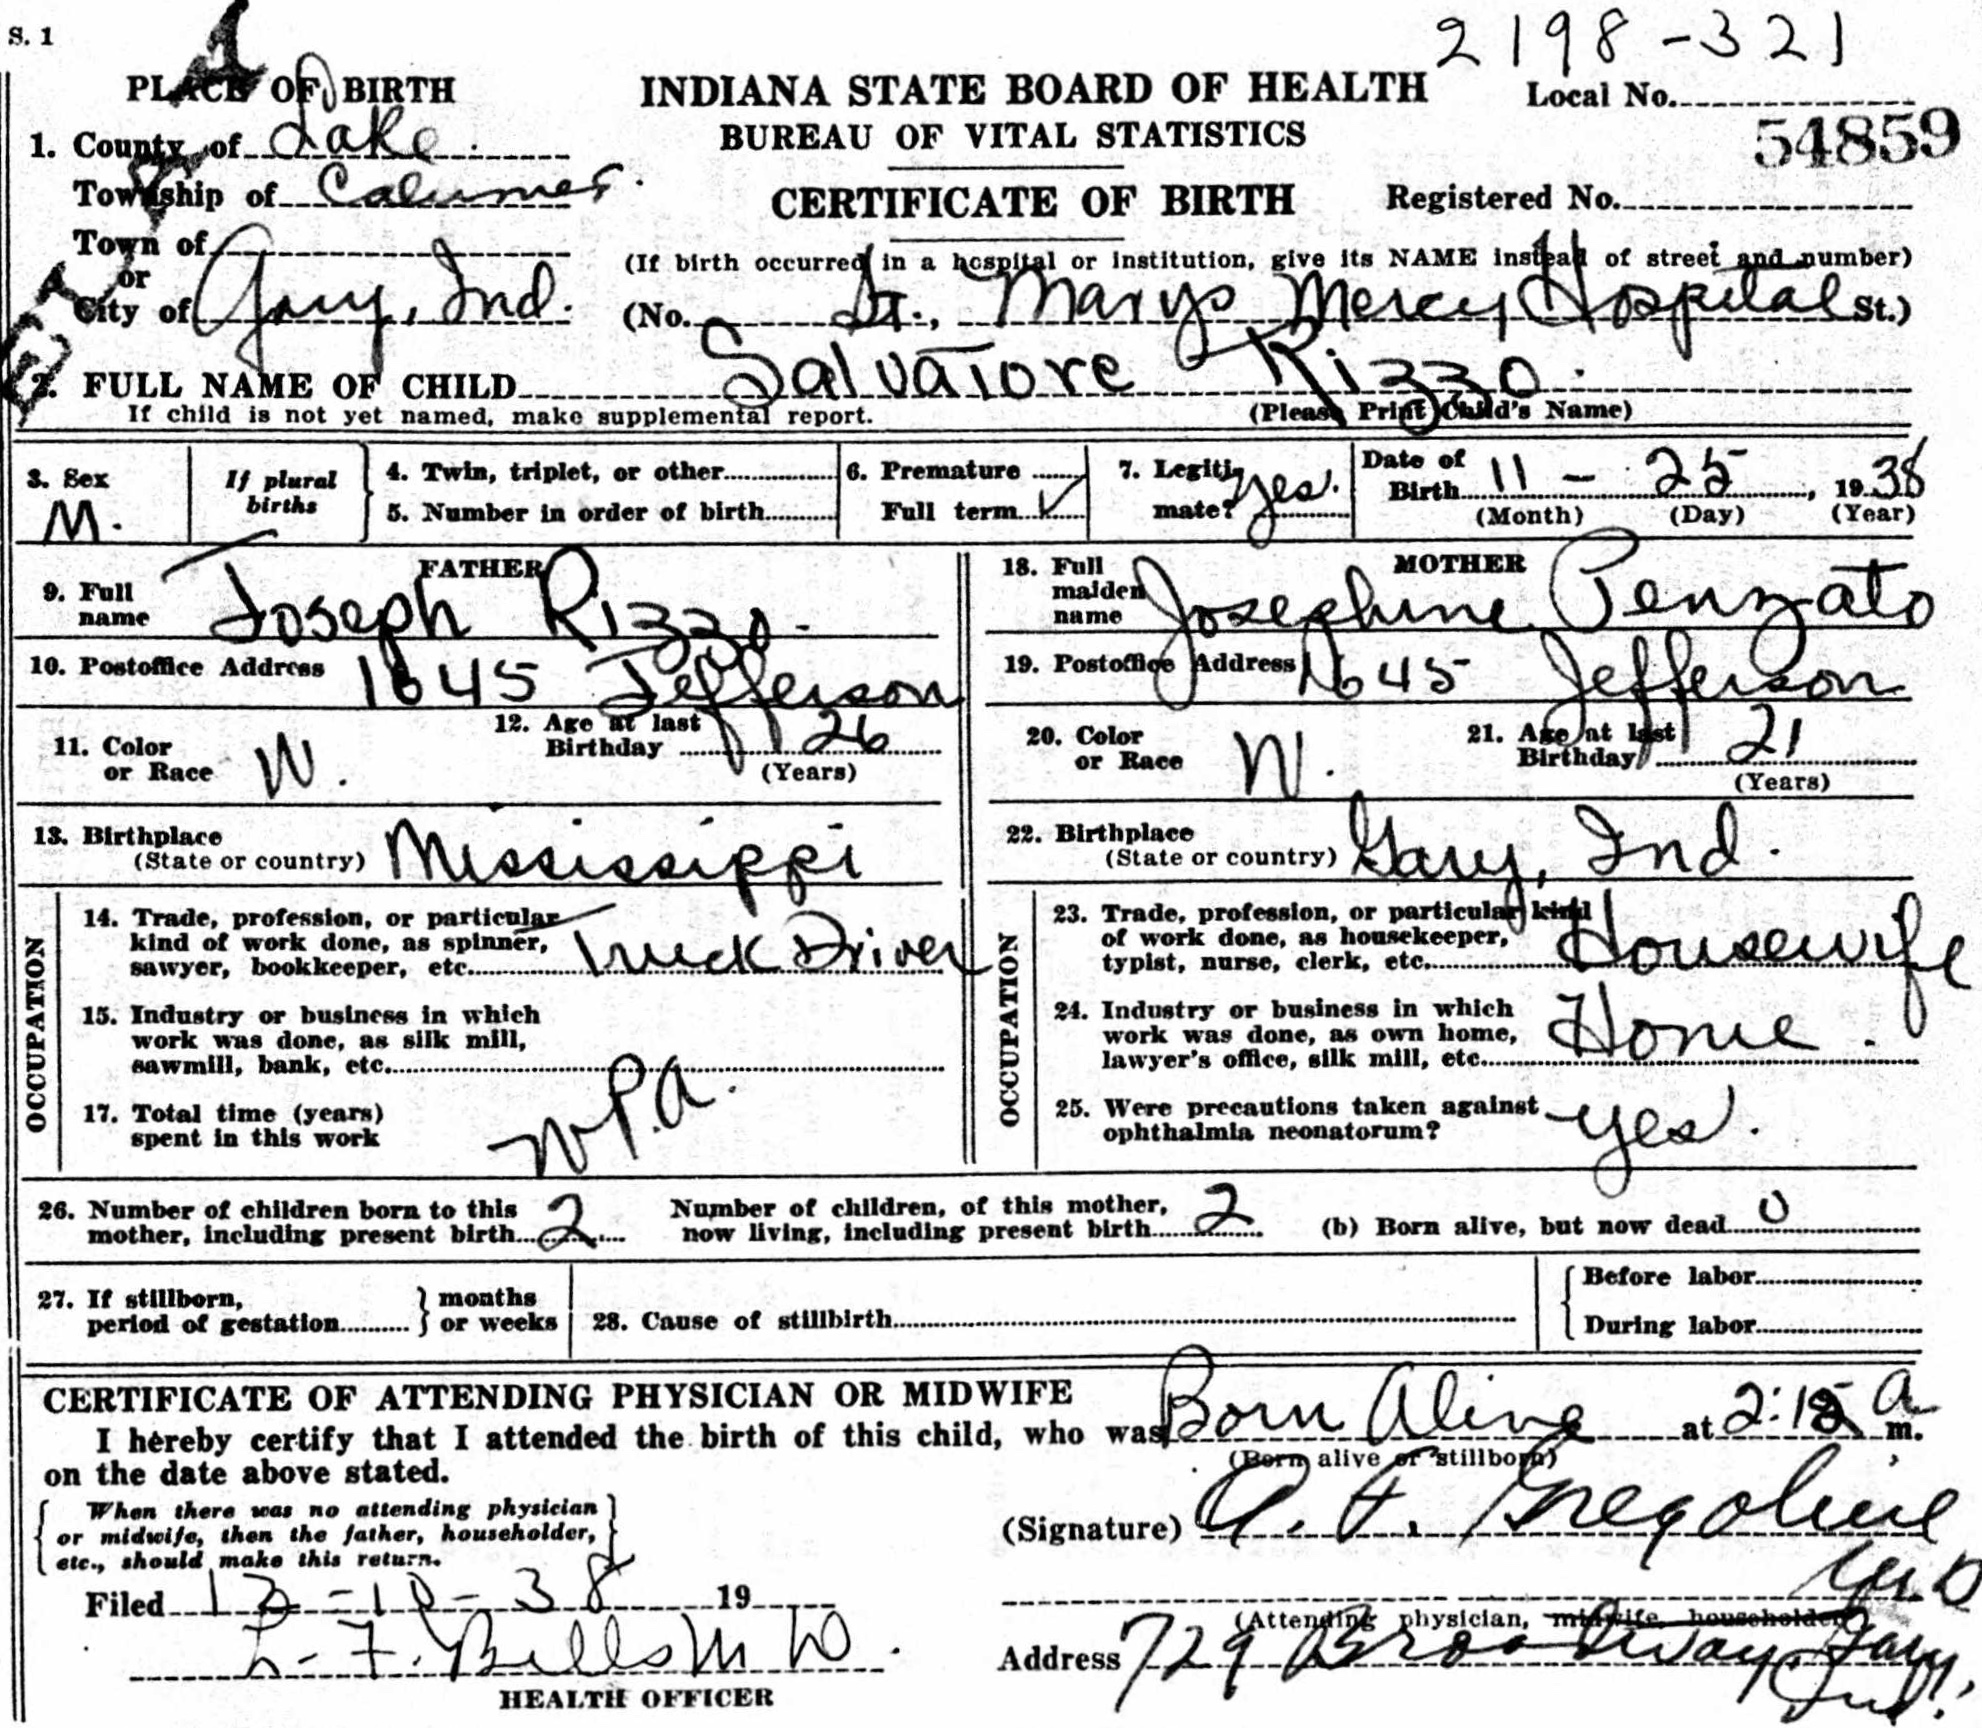 S. 1
2198-321
PLACE OF BIRTH
INDIANA STATE BOARD OF HEALTH
Local No.
BUREAU OF VITAL STATISTICS
54859
1. County of Lake
Township of Calumet.
CERTIFICATE OF BIRTH
Registered No.
Town of
or
City of Gary, Ind.
(If birth occurred in a hospital or institution, give its NAME instead of street and number)
(No. St., Marys Mercy Hospital St.)
2. FULL NAME OF CHILD Salvatore Rizzo.
If child is not yet named, make supplemental report. (Please Print Child's Name)
3. Sex
M.
If plural births
4. Twin, triplet, or other
5. Number in order of birth
6. Premature
Full term ✓
7. Legitimate? Yes.
Date of Birth 11 - 25, 1938
(Month) (Day) (Year)
FATHER
9. Full name Joseph Rizzo.
10. Postoffice Address 1645 Jefferson
11. Color or Race W.
12. Age at last Birthday 26
(Years)
13. Birthplace
(State or country) Mississippi
OCCUPATION
14. Trade, profession, or particular
kind of work done, as spinner,
sawyer, bookkeeper, etc. Truck Driver
15. Industry or business in which
work was done, as silk mill,
sawmill, bank, etc.
17. Total time (years)
spent in this work
W.P.A.
MOTHER
18. Full maiden name Josephine Penzato
19. Postoffice Address 1645 Jefferson
20. Color or Race W.
21. Age at last Birthday 21
(Years)
22. Birthplace
(State or country) Gary, Ind.
OCCUPATION
23. Trade, profession, or particular kind
of work done, as housekeeper,
typist, nurse, clerk, etc. Housewife
24. Industry or business in which
work was done, as own home,
lawyer's office, silk mill, etc. Home.
25. Were precautions taken against
ophthalmia neonatorum? Yes.
26. Number of children born to this
mother, including present birth 2
Number of children, of this mother,
now living, including present birth 2
(b) Born alive, but now dead 0
27. If stillborn,
period of gestation } months
or weeks
28. Cause of stillbirth
Before labor
During labor
CERTIFICATE OF ATTENDING PHYSICIAN OR MIDWIFE
I hereby certify that I attended the birth of this child, who was Born Alive at 2:15 A m.
on the date above stated.
(Born alive or stillborn)
When there was no attending physician
or midwife, then the father, householder,
etc., should make this return.
(Signature) A. F. Gregoline
M.D
(Attending physician, midwife, householder
Filed 12-10-38 19
L. F. Bills M D.
HEALTH OFFICER
Address 729 Broadway Gary,
Ind.